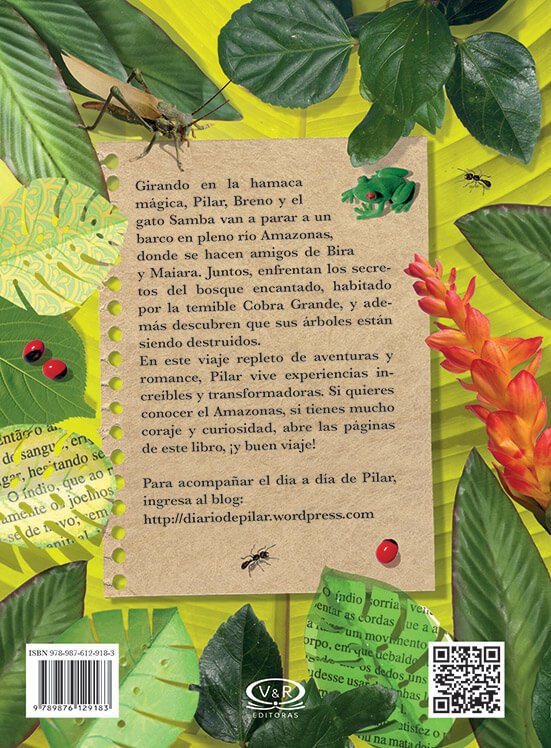 Girando en la hamaca
mágica, Pilar, Breno y el
gato Samba van a parar a un
barco en pleno río Amazonas,
donde se hacen amigos de Bira
y Maiara. Juntos, enfrentan los secre-
tos del bosque encantado, habitado
por la temible Cobra Grande, y ade-
más descubren que sus árboles están
siendo destruidos.
En este viaje repleto de aventuras y
romance, Pilar vive experiencias in-
creíbles y transformadoras. Si quieres
conocer el Amazonas, si tienes mucho
coraje y curiosidad, abre las páginas
de este libro, ¡y buen viaje!
Para acompañar el día a día de Pilar,
ingresa al blog:
http://diariodepilar.wordpress.com
Então a
do sangue, en
gar, hesitando se
O índio, que ao
amente os joelhos
se de novo; sem
animal
O índio sorria,
entar as cordas que a
um moviment
orpo, em que
os dedos uns
udesse usar
ISBN 978-987-612-918-3
9 789876 129183
V&R
EDITORAS